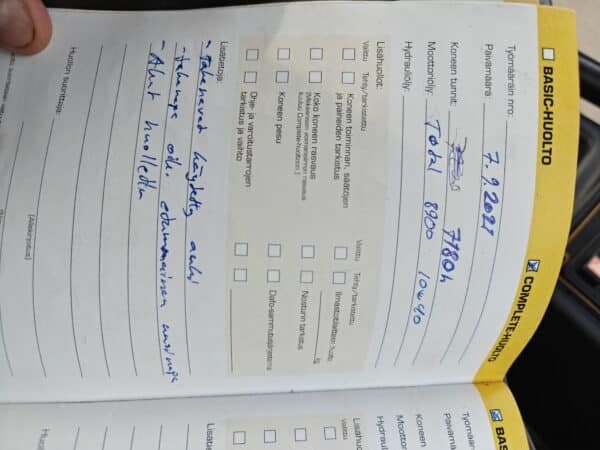 BASIC-HUOLTO
COMPLETE-HUOLTO
Työmääräin nro:
Päivämäärä: 7.9.2021
Koneen tunnit: 7180 h
Moottoriöljy: Total 8900 10w40
Hydrauliöljy:
Lisähuollot:
Valittu Tehty/tarkistettu
Koneen toiminnan, säätöjen
ja paineiden tarkistus
Koko koneen rasvaus
Koneen pesu
Ohje- ja varoitustarrojen
tarkistus ja vaihto
Valittu Tehty/tarkistettu
Ilmastointilaitteen huolto
Nosturin tarkistus
Dafo-sammutusjärjestelmä
Lisätietoja:
- Akut huollettu
Huollon suorittaja:
(Allekirjoitus)
BAS
Työmää
Päivämä
Koneen
Moottori
Hydraul
Lisähuol
Valittu
Lisätiet
Huo